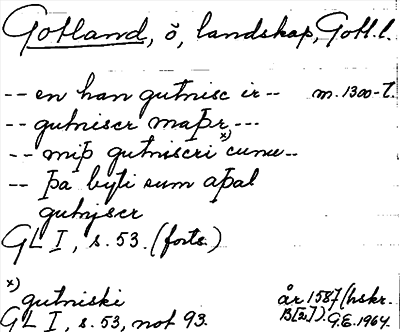 Gotland, ö, landskap, Gotl. l.
-- en han gutnisc ir -- m. 1300-t.
-- gutniscr maþr ---
-- miþ gutniscri cunu x) --
-- þa byti sum aþal
gutnjscr
GL I, s. 53. (forts.)
x) gutniski år 1587 (hskr.
GL I, s. 53, not 93. B[2]). G.E. 1964.